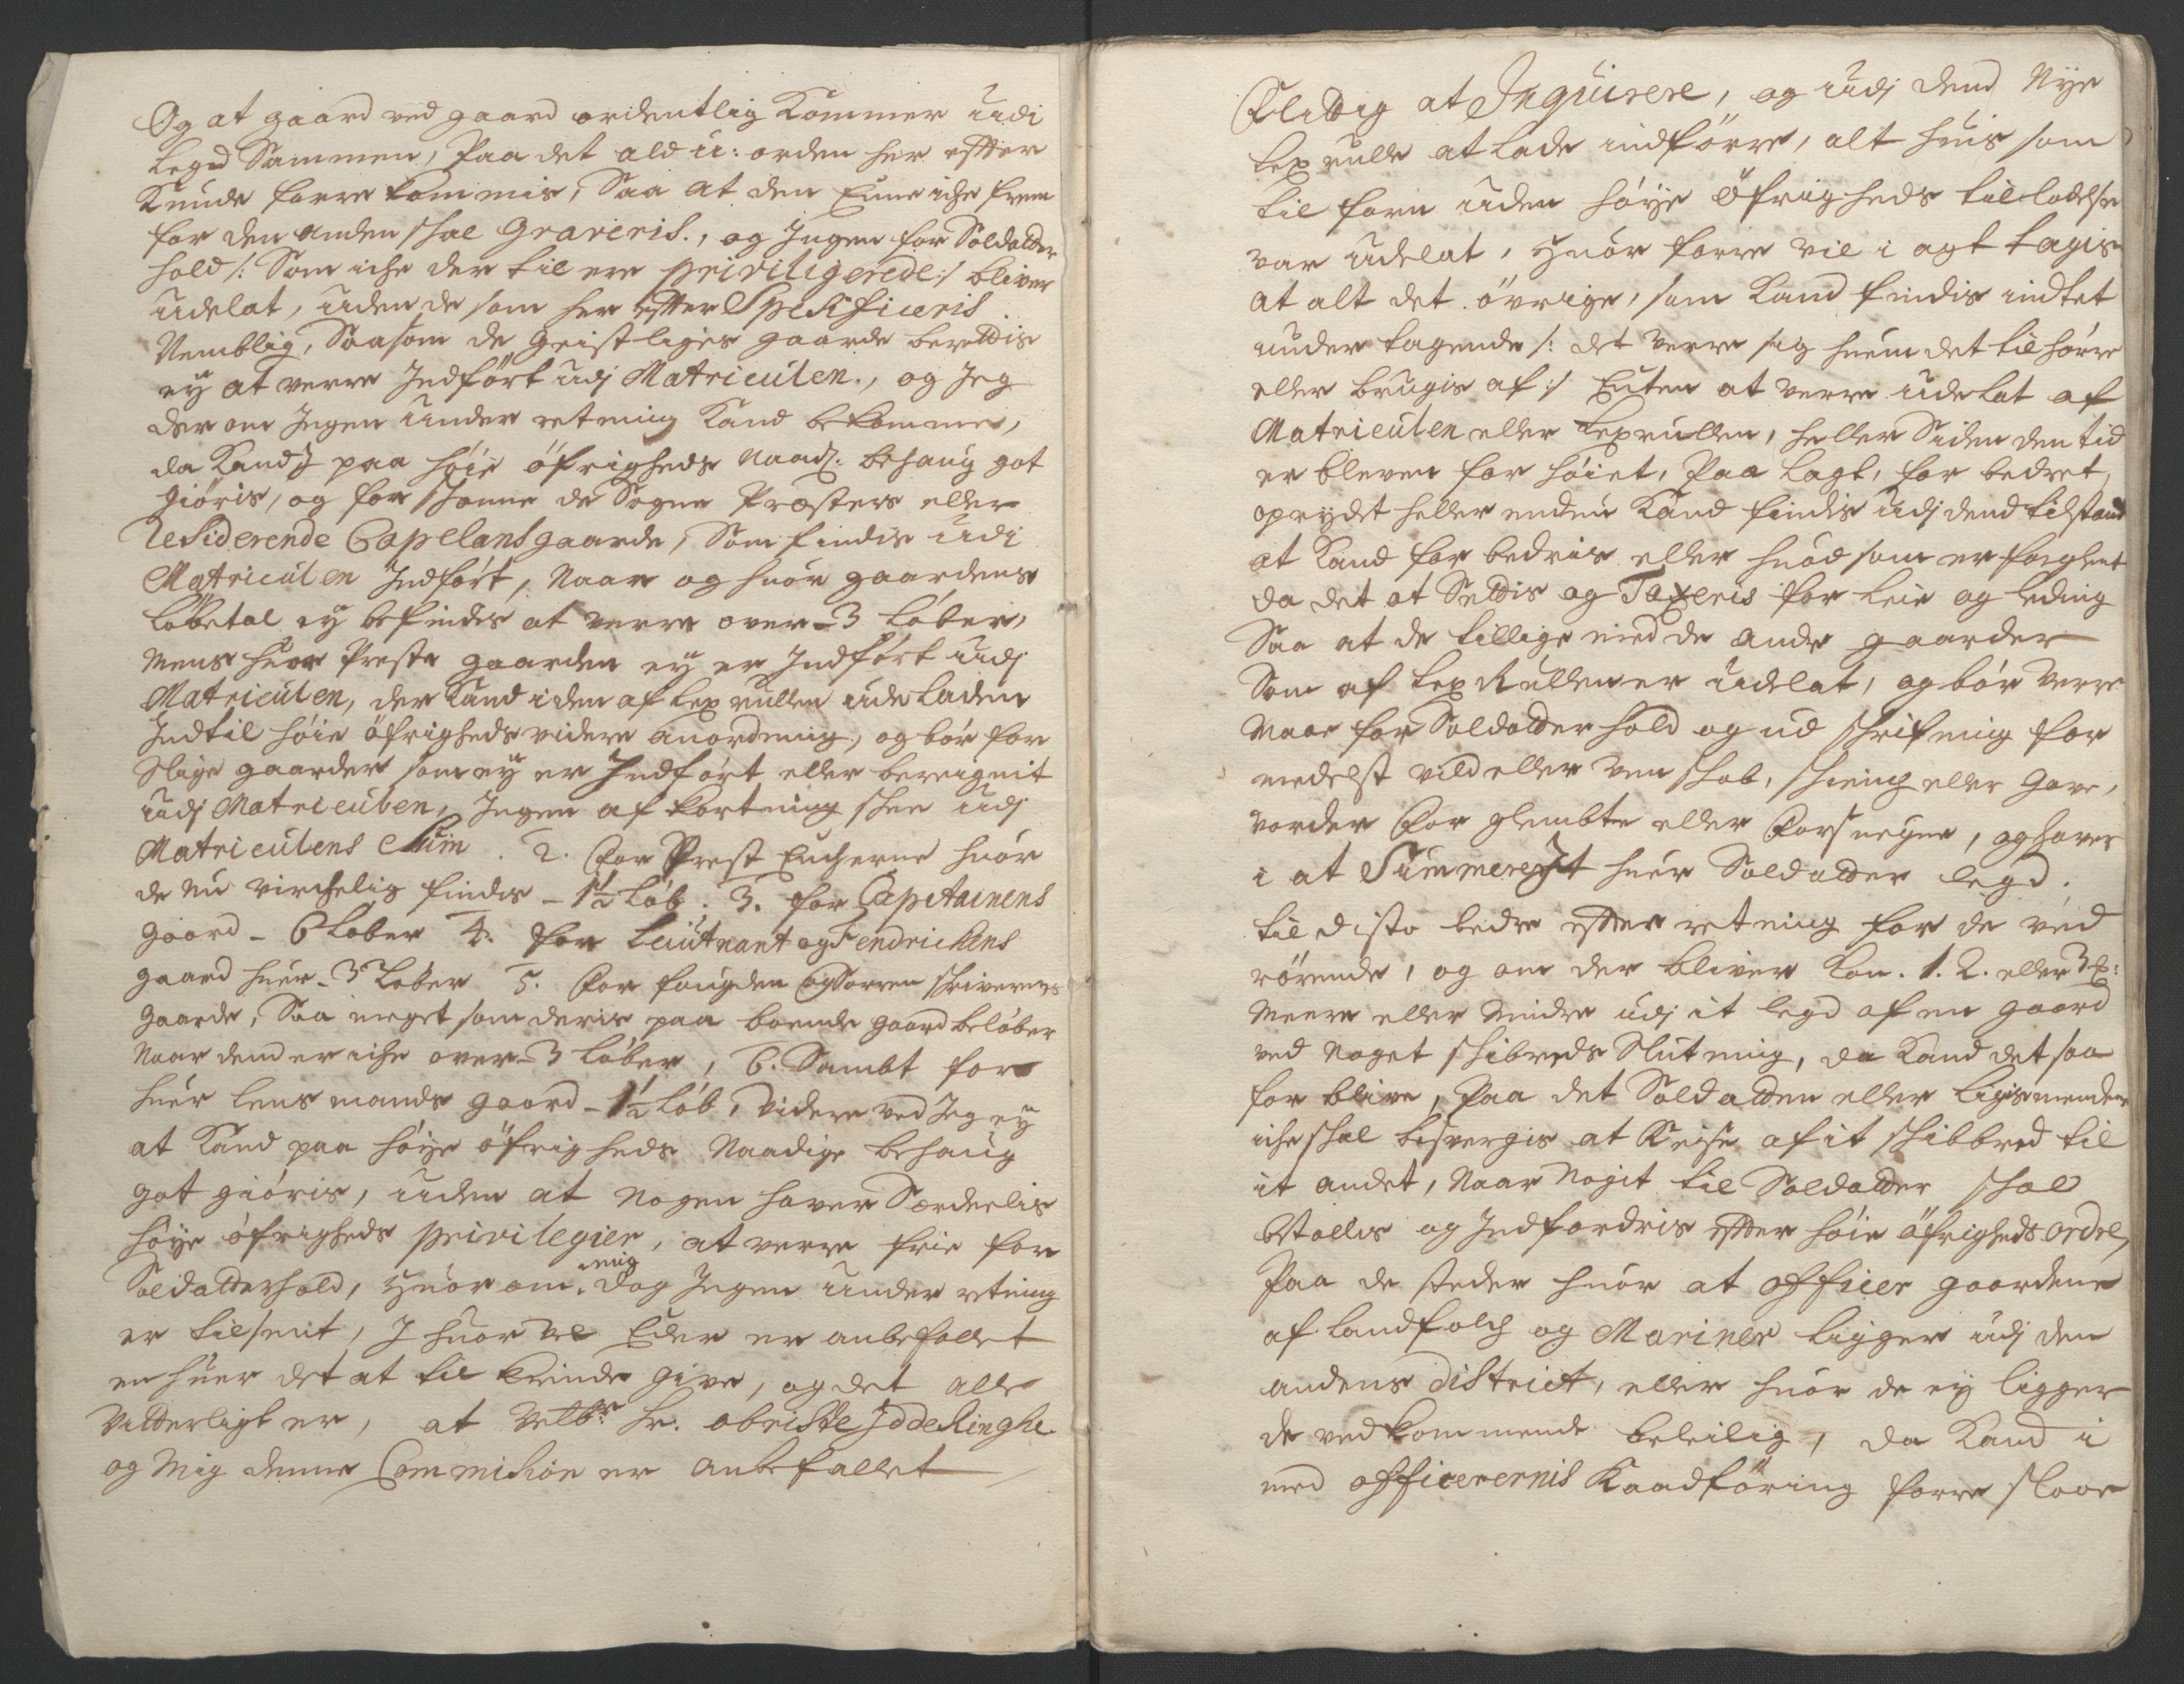 Og at gaard ved gaard ordentlig Kommer udi
legd Sammen, Paa det ald u: orden her effter
Kunde forre kommis, Saa at den Eene iche frem
for den anden schal Graveris., og Ingen for Soldatter
hold /: Som iche der til ere priviligerede :/ bliver
udelat, uden de som her effter Spesificeris
Nemblig, Saasom de geistliges gaarde berettis
ey at verre Indført udj Matriculen., og Jeg
der om Ingen under retning Kand bekomme,
da Kand paa høie øfrigheds Naad: behaug got
giøris, og for schonne de Sogne Præsters eller
Residerende Capelans gaarde, Som findis udi
Matriculen Indført, Naar og huor gaardens
løbetal ey befindes at verre over - 3 løber,
Mens huor Preste gaarden ey er Indført udj
Matriculen, der Kand iden af lex rullen udeladen
Indtil høie øfrigheds videre anordning, og bør for
Slige gaarder som ey er Indført eller bereignit
udj Matriculen, Ingen af kortning schee udj
Matriculens Sum. 2. For Prest Encherne huor
de nu virchelig findis - 1½ Løb. 3. for Capitainens
gaard - 6 Løber 4. for Leutnant og Fendrichens
gaard huer - 3 Løber 5. For fougden og Sorren schriverens
gaarde, Saa meget som deris paa boende gaard beløber
Naar dend er iche over - 3 løber, 6. Sambt for
huer lens mands gaard - 1½ løb, videre ved Jeg ey
at Kand paa høye øfrigheds Naadige behaug
got giøris, uden at nogen haver Særdeelis
høye øfrigheds privilegier, at verre frie for
Soldatterhold, huor om mig dog Ingen under retning
er tilsent, I huor vel Eder er anbefallet
en huer det at til Kiende give, og det alle
vitterligt er, at Velb:r Hr. obriste
og Mig denne Commision er anbefallet
Flittig at Inqvirere, og udj dend Nye
lex rulle at lade indførre, alt huis som
til forn uden høye Øfrigheds tilladelse
var udelat, huor forre vil i agt tagis
at alt det øvrige, som Kand findis indtet
under tagende /: det verre sig huem det tilhører
eller brugis af :/ Enten at verre udelat af
Matriculen eller lexrullen, heller Siden den tid
er bleven for høiet, Paa lagt, for bedret,
oprydet heller endnu Kand findis udj dend tilstand
at Kand for bedris eller huad som er forglemt
da det at Settis og Taxeris for leie og leding
Saa at de tillige med de andre gaarder
Som af lex Rullen er udelat, og bør verre
Naar for Soldatter hold og ud schrifning for
medelst vild eller ven schab, schienk eller gave,
vorder For glembte eller Forsuegne, og haver
i at Summere It huer Soldatter legd.
til disto bedre effter retning for de ved
rørende, og om der bliver Kon. 1. 2. eller 3 L:
Meere eller Mindre udj it legd af en gaard
ved noget schibreds Slutning, da Kand det saa
for blive, Paa det Soldatten eller ligismenden
iche schal besvergis at Reise af it schibbred til
it andet, Naar Nogit til Soldatter schal
bestellis og Indfordris effter høie øfrigheds ordre,
Paa de steder huor at officer gaardene
af landfolch og Mariner ligger udj den
andens District, eller huor de ey ligger
de ved kommende beleilig, da Kand i
med officerernis Raadføring forre slaae